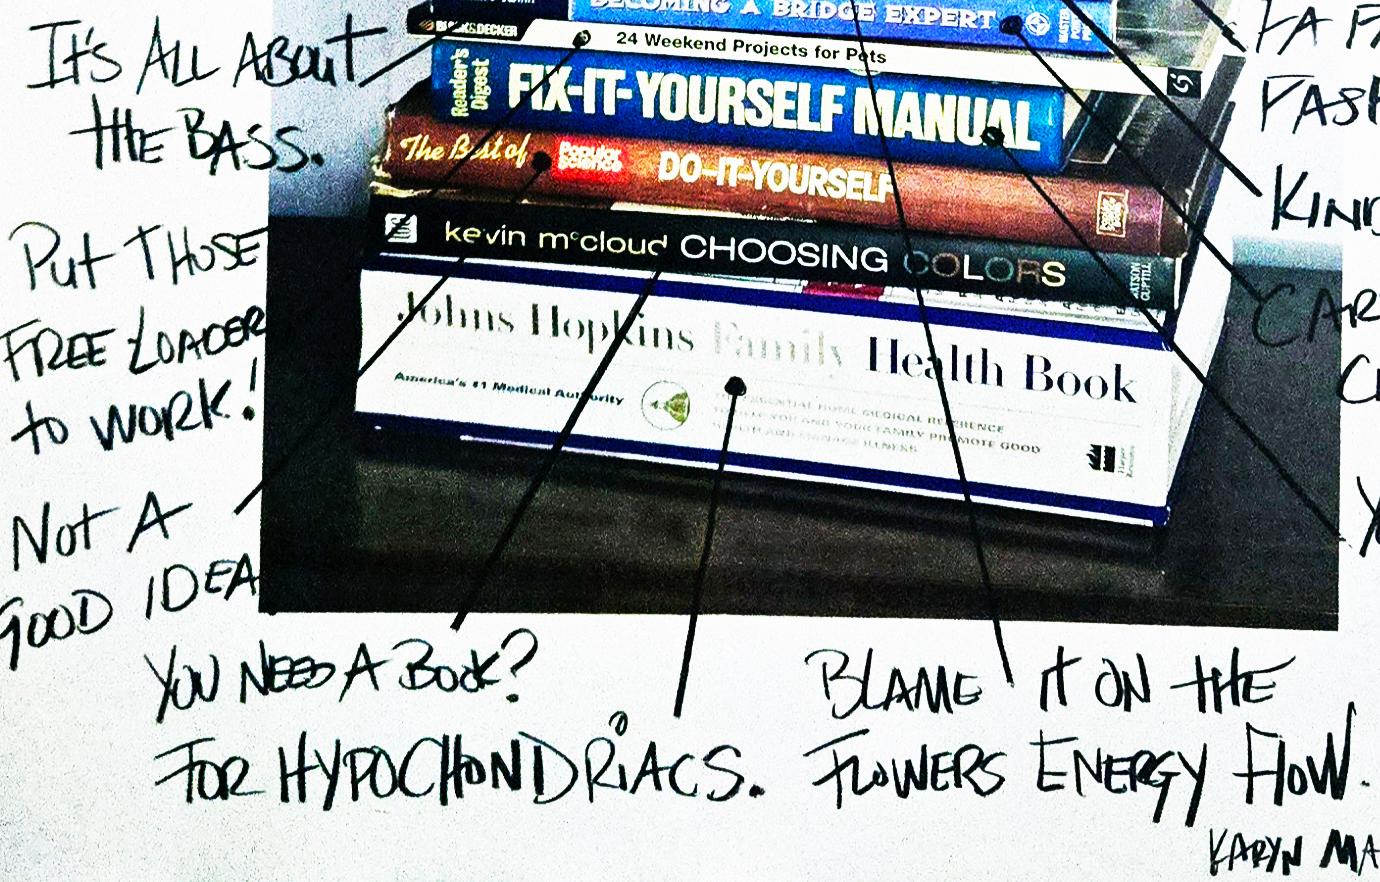 IT'S ALL ABOUT
THE BASS.
PUT THOSE
FREE LOADER
TO WORK!
NOT A
GOOD IDEA
BECOMING A BRIDGE EXPERT
BLACK&DECKER
24 Weekend Projects for Pets
Reader's
Digest
FIX-IT-YOURSELF MANUAL
The Best of
Popular
Science
DO-IT-YOURSELF
kevin mccloud CHOOSING COLORS
Johns Hopkins Family Health Book
America's #1 Medical Authority
THE ESSENTIAL HOME MEDICAL REFERENCE
TO HELP YOU AND YOUR FAMILY PROMOTE GOOD
HEALTH AND MANAGE ILLNESS
YOU NEED A BOOK?
FOR HYPOCHONDRIACS.
BLAME IT ON THE
FLOWERS ENERGY FLOW.
KARYN MA